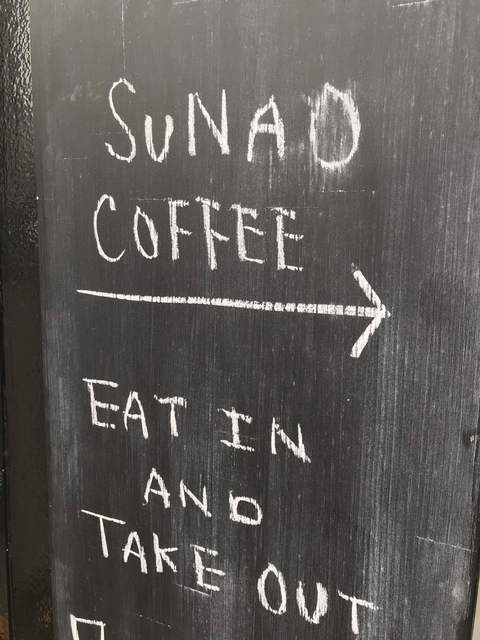 SUNAO
COFFEE
EAT IN
AND
TAKE OUT